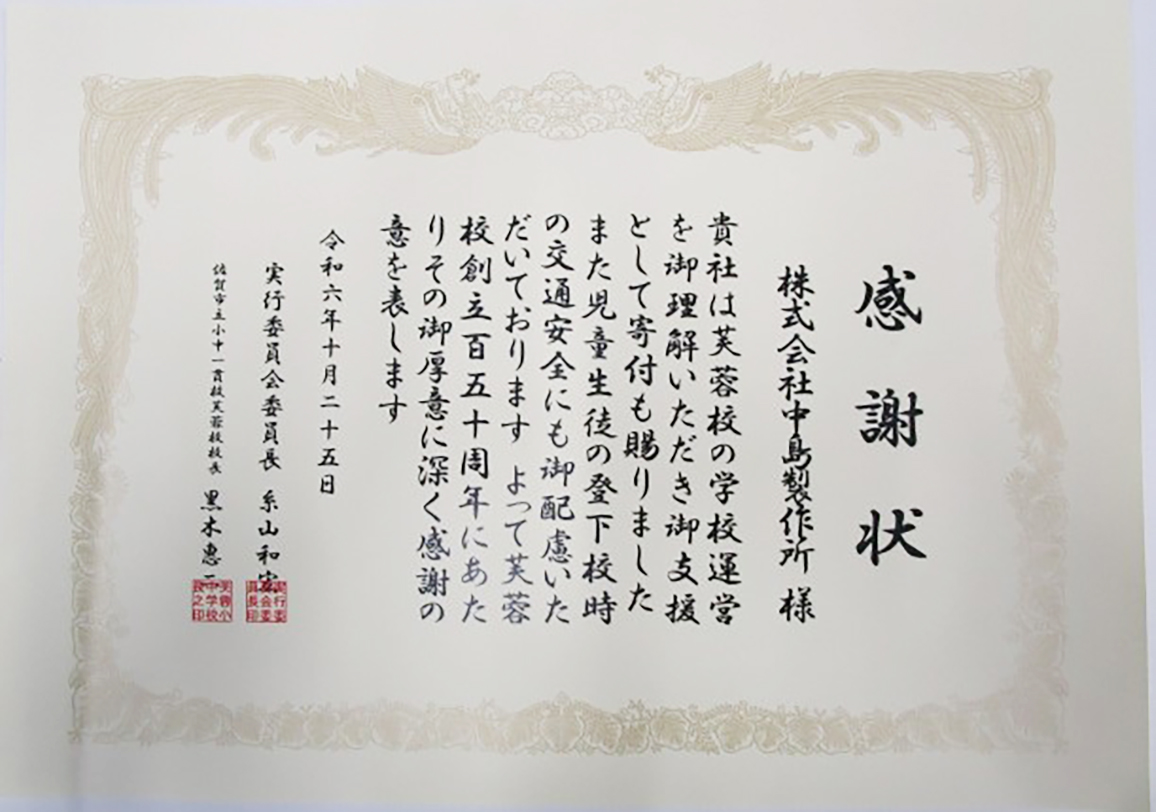 感謝状
株式会社中島製作所 様
貴社は芙蓉校の学校運営
を御理解いただき御支援
として寄付も賜りました
また児童生徒の登下校時
の交通安全にも御配慮いた
だいております よって芙蓉
校創立百五十周年にあた
りその御厚意に深く感謝の
意を表します
令和六年十月二十五日
実行委員会委員長 糸山和
佐賀市立小中一貫校芙蓉校校長 黒木恵